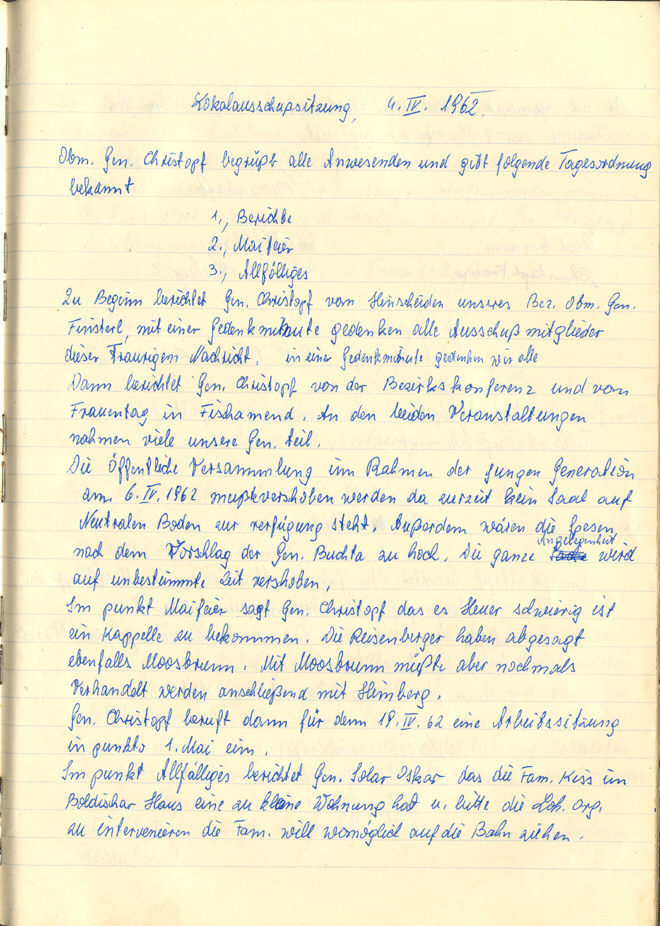 Lokalausschußsitzung, 4. IV. 1962.
Obm. Gen. Christopf begrüßt alle Anwesenden und gibt folgende Tagesordnung
bekannt
1., Berichte
2., Maifeier
3., Allfälliges
Zu Beginn berichtet Gen. Christopf vom Hinscheiden unseres Bez. Obm. Gen.
Finsterl, mit einer Gedenkminute gedenken alle Ausschußmitglieder
dieser Traurigen Nachricht. in einer Gedenkminute gedenken wir alle
Dann berichtet Gen. Christopf von der Bezirkskonferenz und vom
Frauentag in Fischamend. An den beiden Veranstaltungen
nahmen viele unsere Gen. teil.
Die Öffentliche Versammlung im Rahmen der jungen Generation
am 6. IV. 1962 mußte verschoben werden da zurzeit kein Saal auf
Neutralen Boden zur verfügung steht. Außerdem wären die Spesen
nach dem Vorschlag der Gen. Buchta zu hoch. Die ganze Angelegenheit wird
auf unbestimmte Zeit vershoben.
Im punkt Maifeier sagt Gen. Christopf das es Heuer schwierig ist
ein Kappelle zu bekommen. Die Reisenberger haben abgesagt
ebenfalls Moosbrunn. Mit Moosbrunn müßte aber nochmals
Verhandelt werden anschließend mit Himberg.
Gen. Christopf beruft dann für denn 18. IV. 62 eine Arbeitssitzung
in punkto 1. Mai ein.
Im punkt Allfälliges berichtet Gen. Solar Oskar das die Fam. Kiss im
Boldischar Haus eine zu kleine Wohnung hat u. bitte die Lok. Org.
zu intervenieren die Fam. will womöglich auf die Bahn ziehen.